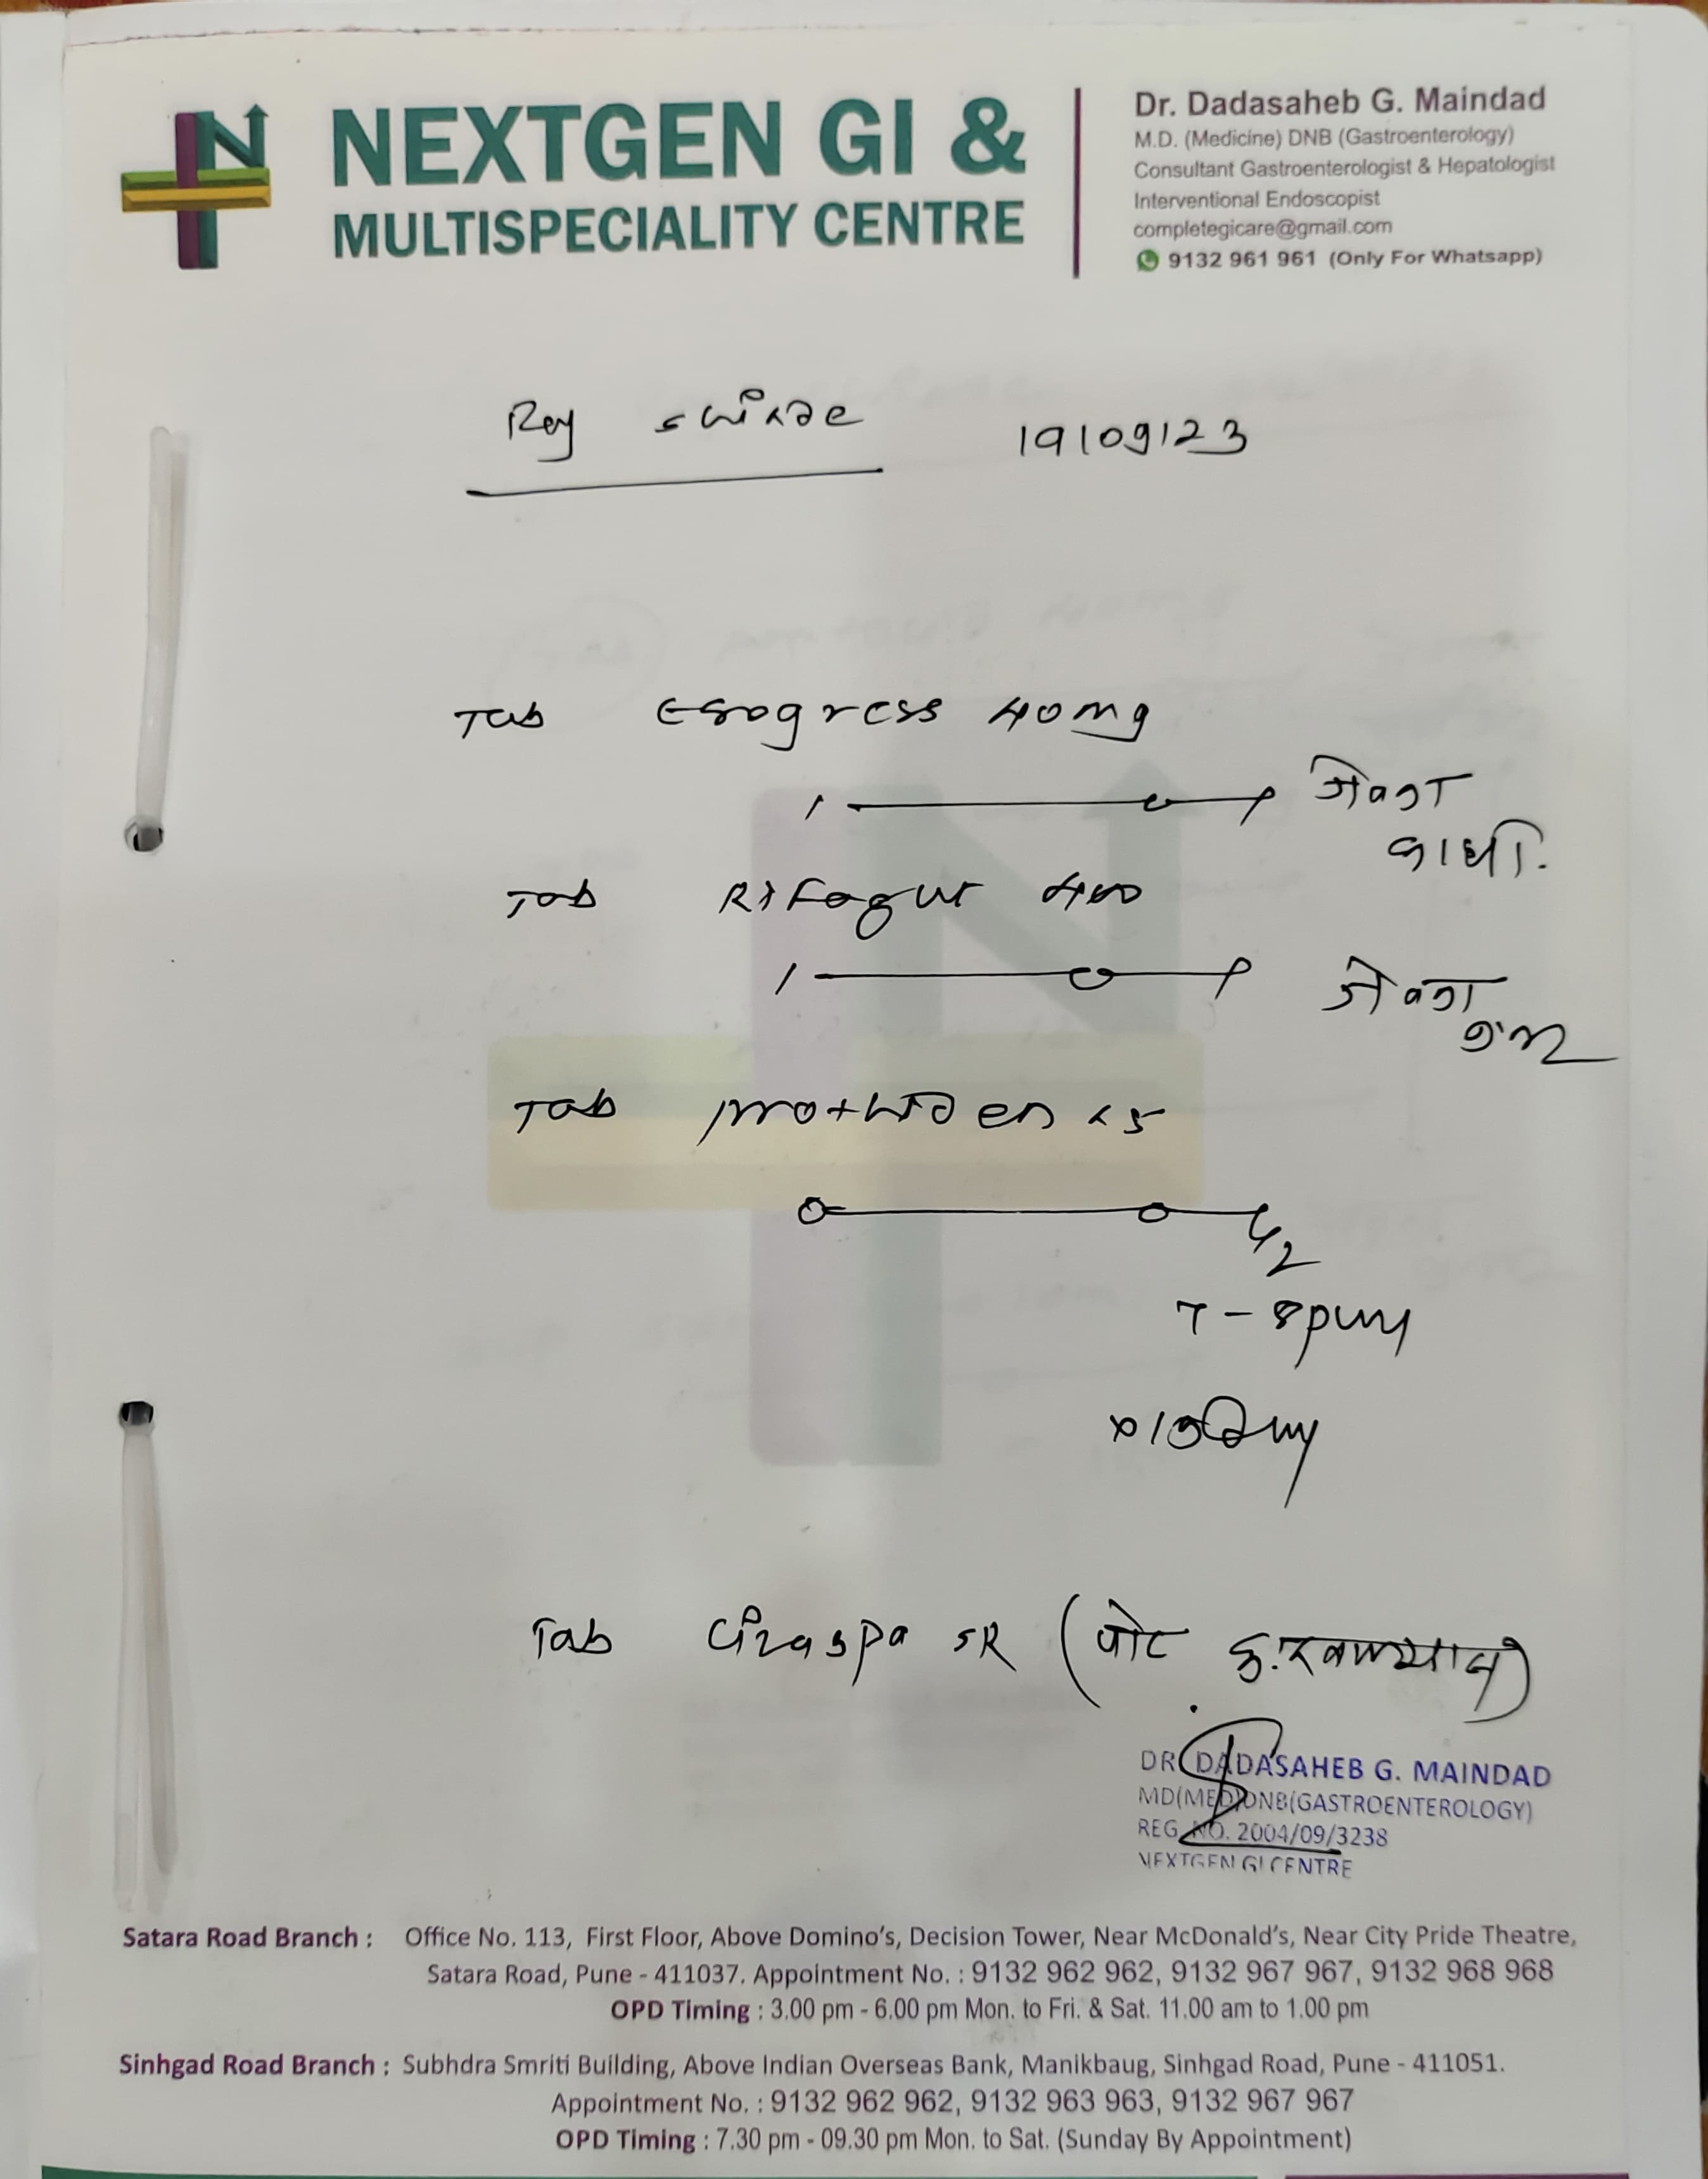 NEXTGEN GI &
MULTISPECIALITY CENTRE
Dr. Dadasaheb G. Maindad
M.D. (Medicine) DNB (Gastroenterology)
Consultant Gastroenterologist & Hepatologist
Interventional Endoscopist
completegicare@gmail.com
9132 961 961 (Only For Whatsapp)
Raj Shinde 19/09/23
Tab Esogress 40mg
1 — 0 — 1 जेवणा
आधी.
Tab Rifagut 400
1 — 0 — 1 जेवणा
नंतर
Tab Prothiden 25
0 — 0 — 1/2
7 - 8pm
x 10 days
Tab Ciraspa SR (पोट दुखल्यास)
DR. DADASAHEB G. MAINDAD
MD(MED)DNB(GASTROENTEROLOGY)
REG. NO. 2004/09/3238
NEXTGEN GI CENTRE
Satara Road Branch : Office No. 113, First Floor, Above Domino's, Decision Tower, Near McDonald's, Near City Pride Theatre,
Satara Road, Pune - 411037. Appointment No. : 9132 962 962, 9132 967 967, 9132 968 968
OPD Timing : 3.00 pm - 6.00 pm Mon. to Fri. & Sat. 11.00 am to 1.00 pm
Sinhgad Road Branch : Subhdra Smriti Building, Above Indian Overseas Bank, Manikbaug, Sinhgad Road, Pune - 411051.
Appointment No. : 9132 962 962, 9132 963 963, 9132 967 967
OPD Timing : 7.30 pm - 09.30 pm Mon. to Sat. (Sunday By Appointment)